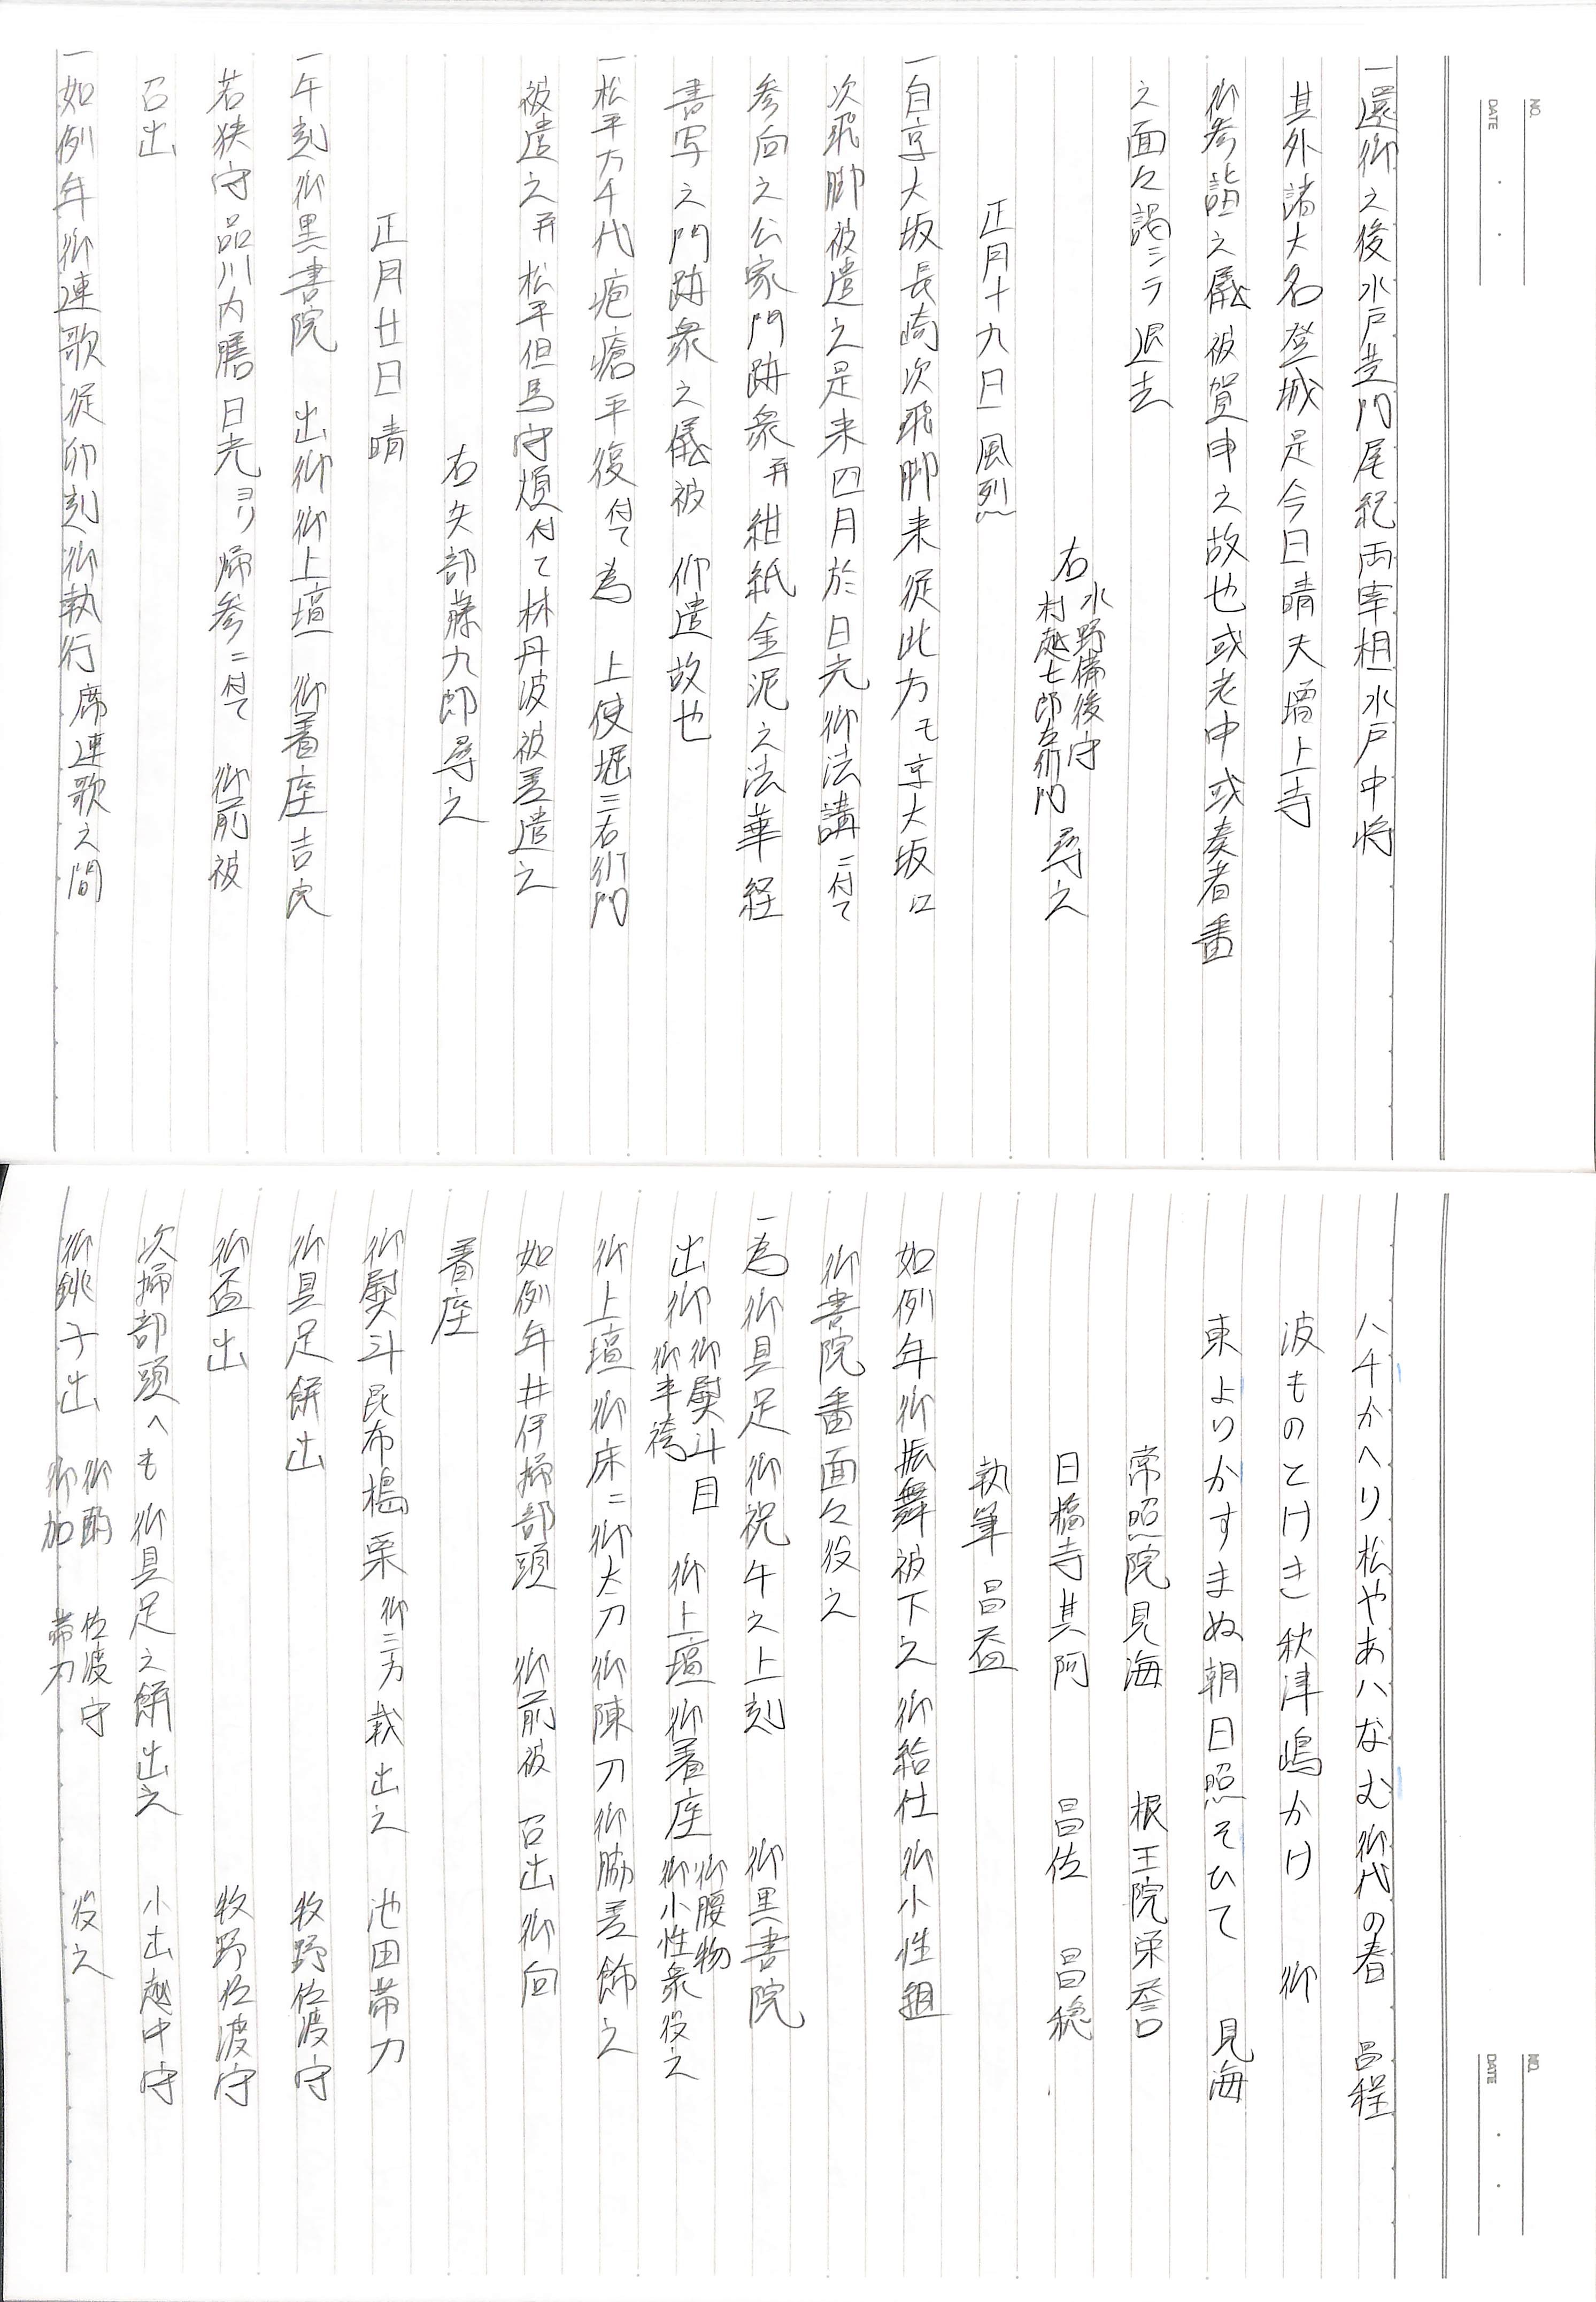 NO.
DATE
一還御之後水戸黄門尾紀両宰相水戸中将
其外諸大名登城是今日晴天増上寺
御参詣之儀被賀申之故也或老中或奏者番
之面々謁シテ退去
右 水野備後守
村越七郎左衛門 尋之
正月十九日 風烈
一自京大坂長崎次飛脚来従此方モ京大坂江
次飛脚被遣之是来四月於日光御法講ニ付て
参向之公家門跡衆并紺紙金泥之法華経
書写之門跡衆之儀被 仰遣故也
一松平万千代疱瘡平復付て為 上使堀三右衛門
被遣之并松平但馬守煩付て林丹波被差遣之
右矢部藤九郎尋之
正月廿日 晴
一午刻御黒書院 出御御上壇 御着座吉良
若狭守品川内膳日光ヨリ帰参ニ付て 御前被
召出
一如例年御連歌従卯刻御執行 席連歌之間
NO.
DATE
八千かへり松やあハなむ御代の春 昌程
波ものとけき秋津嶋かけ 御
東よりかすまぬ朝日照そひて 見海
常照院見海 根王院栄誉
日橋寺其阿 昌佐 昌穏
執筆 昌益
如例年御振舞被下之 御給仕御小性組
御書院番面々役之
一為御具足御祝午之上刻 御黒書院
出御 御熨斗目
御半袴 御上壇御着座 御腰物
御小性衆役之
御上壇御床ニ御太刀御陳刀御脇差飾之
如例年井伊掃部頭 御前被 召出御向
着座
御熨斗昆布搗栗 御三方載出之 池田帯刀
御具足餅出 牧野佐渡守
御盃出 牧野佐渡守
次掃部頭へも御具足之餅出之 小出越中守
御銚子出 御酌 佐渡守
御加 帯刀 役之